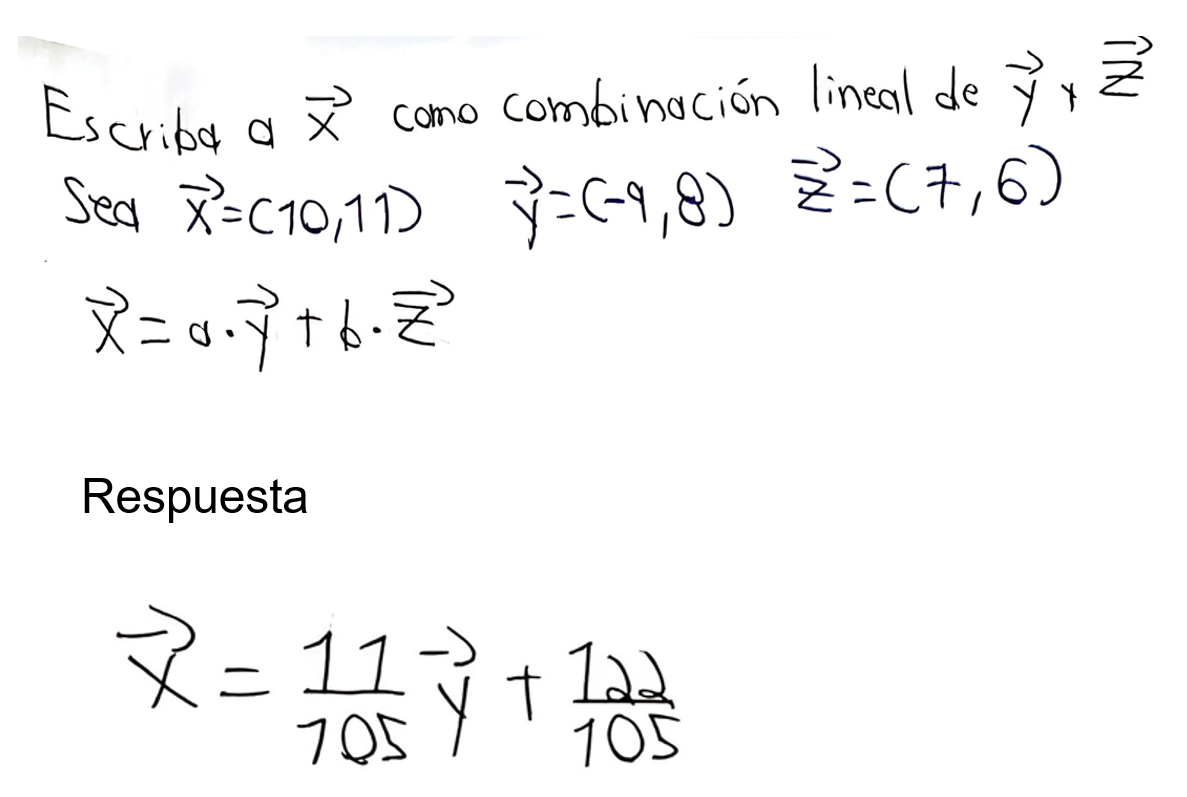 Escriba a x⃗ como combinación lineal de y⃗ y z⃗
Sea x⃗=(10,11) y⃗=(-9,8) z⃗=(7,6)
x⃗=a·y⃗+b·z⃗
Respuesta
x⃗ = 11/105 y⃗ + 122/105